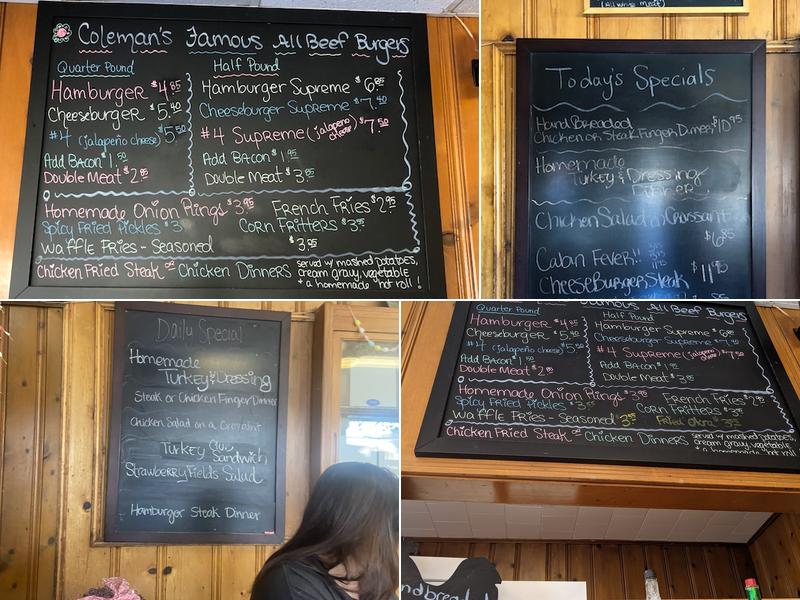 Coleman's Famous All Beef Burgers
Quarter Pound
Hamburger $4.85
Cheeseburger $5.40
#4 (jalapeño cheese) $5.50
Add Bacon $1.50
Double Meat $2.85
Half Pound
Hamburger Supreme $6.85
Cheeseburger Supreme $7.40
#4 Supreme (jalapeño cheese) $7.50
Add Bacon $1.95
Double Meat $3.85
Homemade Onion Rings $3.95
French Fries $2.95
Spicy Fried Pickles $3
Corn Fritters $3.95
Waffle Fries - Seasoned $3.95
Chicken Fried Steak or Chicken Dinners
served w/ mashed potatoes,
cream gravy, vegetable
* a homemade hot roll!
(All white meat)
Today's Specials
Hand Breaded
Chicken or Steak Finger Dinner $10.95
Homemade
Turkey & Dressing
Dinner
Chicken Salad on Croissant
$6.85
Cabin Fever!!
Cheeseburger Steak $11.95
Daily Special
Homemade
Turkey & Dressing
Steak or Chicken Finger Dinner
Chicken Salad on a Croissant
Turkey Club
Sandwich
Strawberry Fields Salad
Hamburger Steak Dinner
Famous All Beef Burgers
Quarter Pound
Hamburger $4.85
Cheeseburger $5.40
#4 (jalapeño cheese) $5.50
Add Bacon $1.50
Double Meat $2.85
Half Pound
Hamburger Supreme $6.85
Cheeseburger Supreme $7.40
#4 Supreme (jalapeño cheese) $7.50
Add Bacon $1.95
Double Meat $3.85
Homemade Onion Rings $3.95
French Fries $2.95
Spicy Fried Pickles $3.95
Corn Fritters $3.95
Waffle Fries - Seasoned 3.95
Fried Okra 3.95
Chicken Fried Steak or Chicken Dinners
served w/ mashed potatoes,
cream gravy, vegetable
* a homemade hot roll!